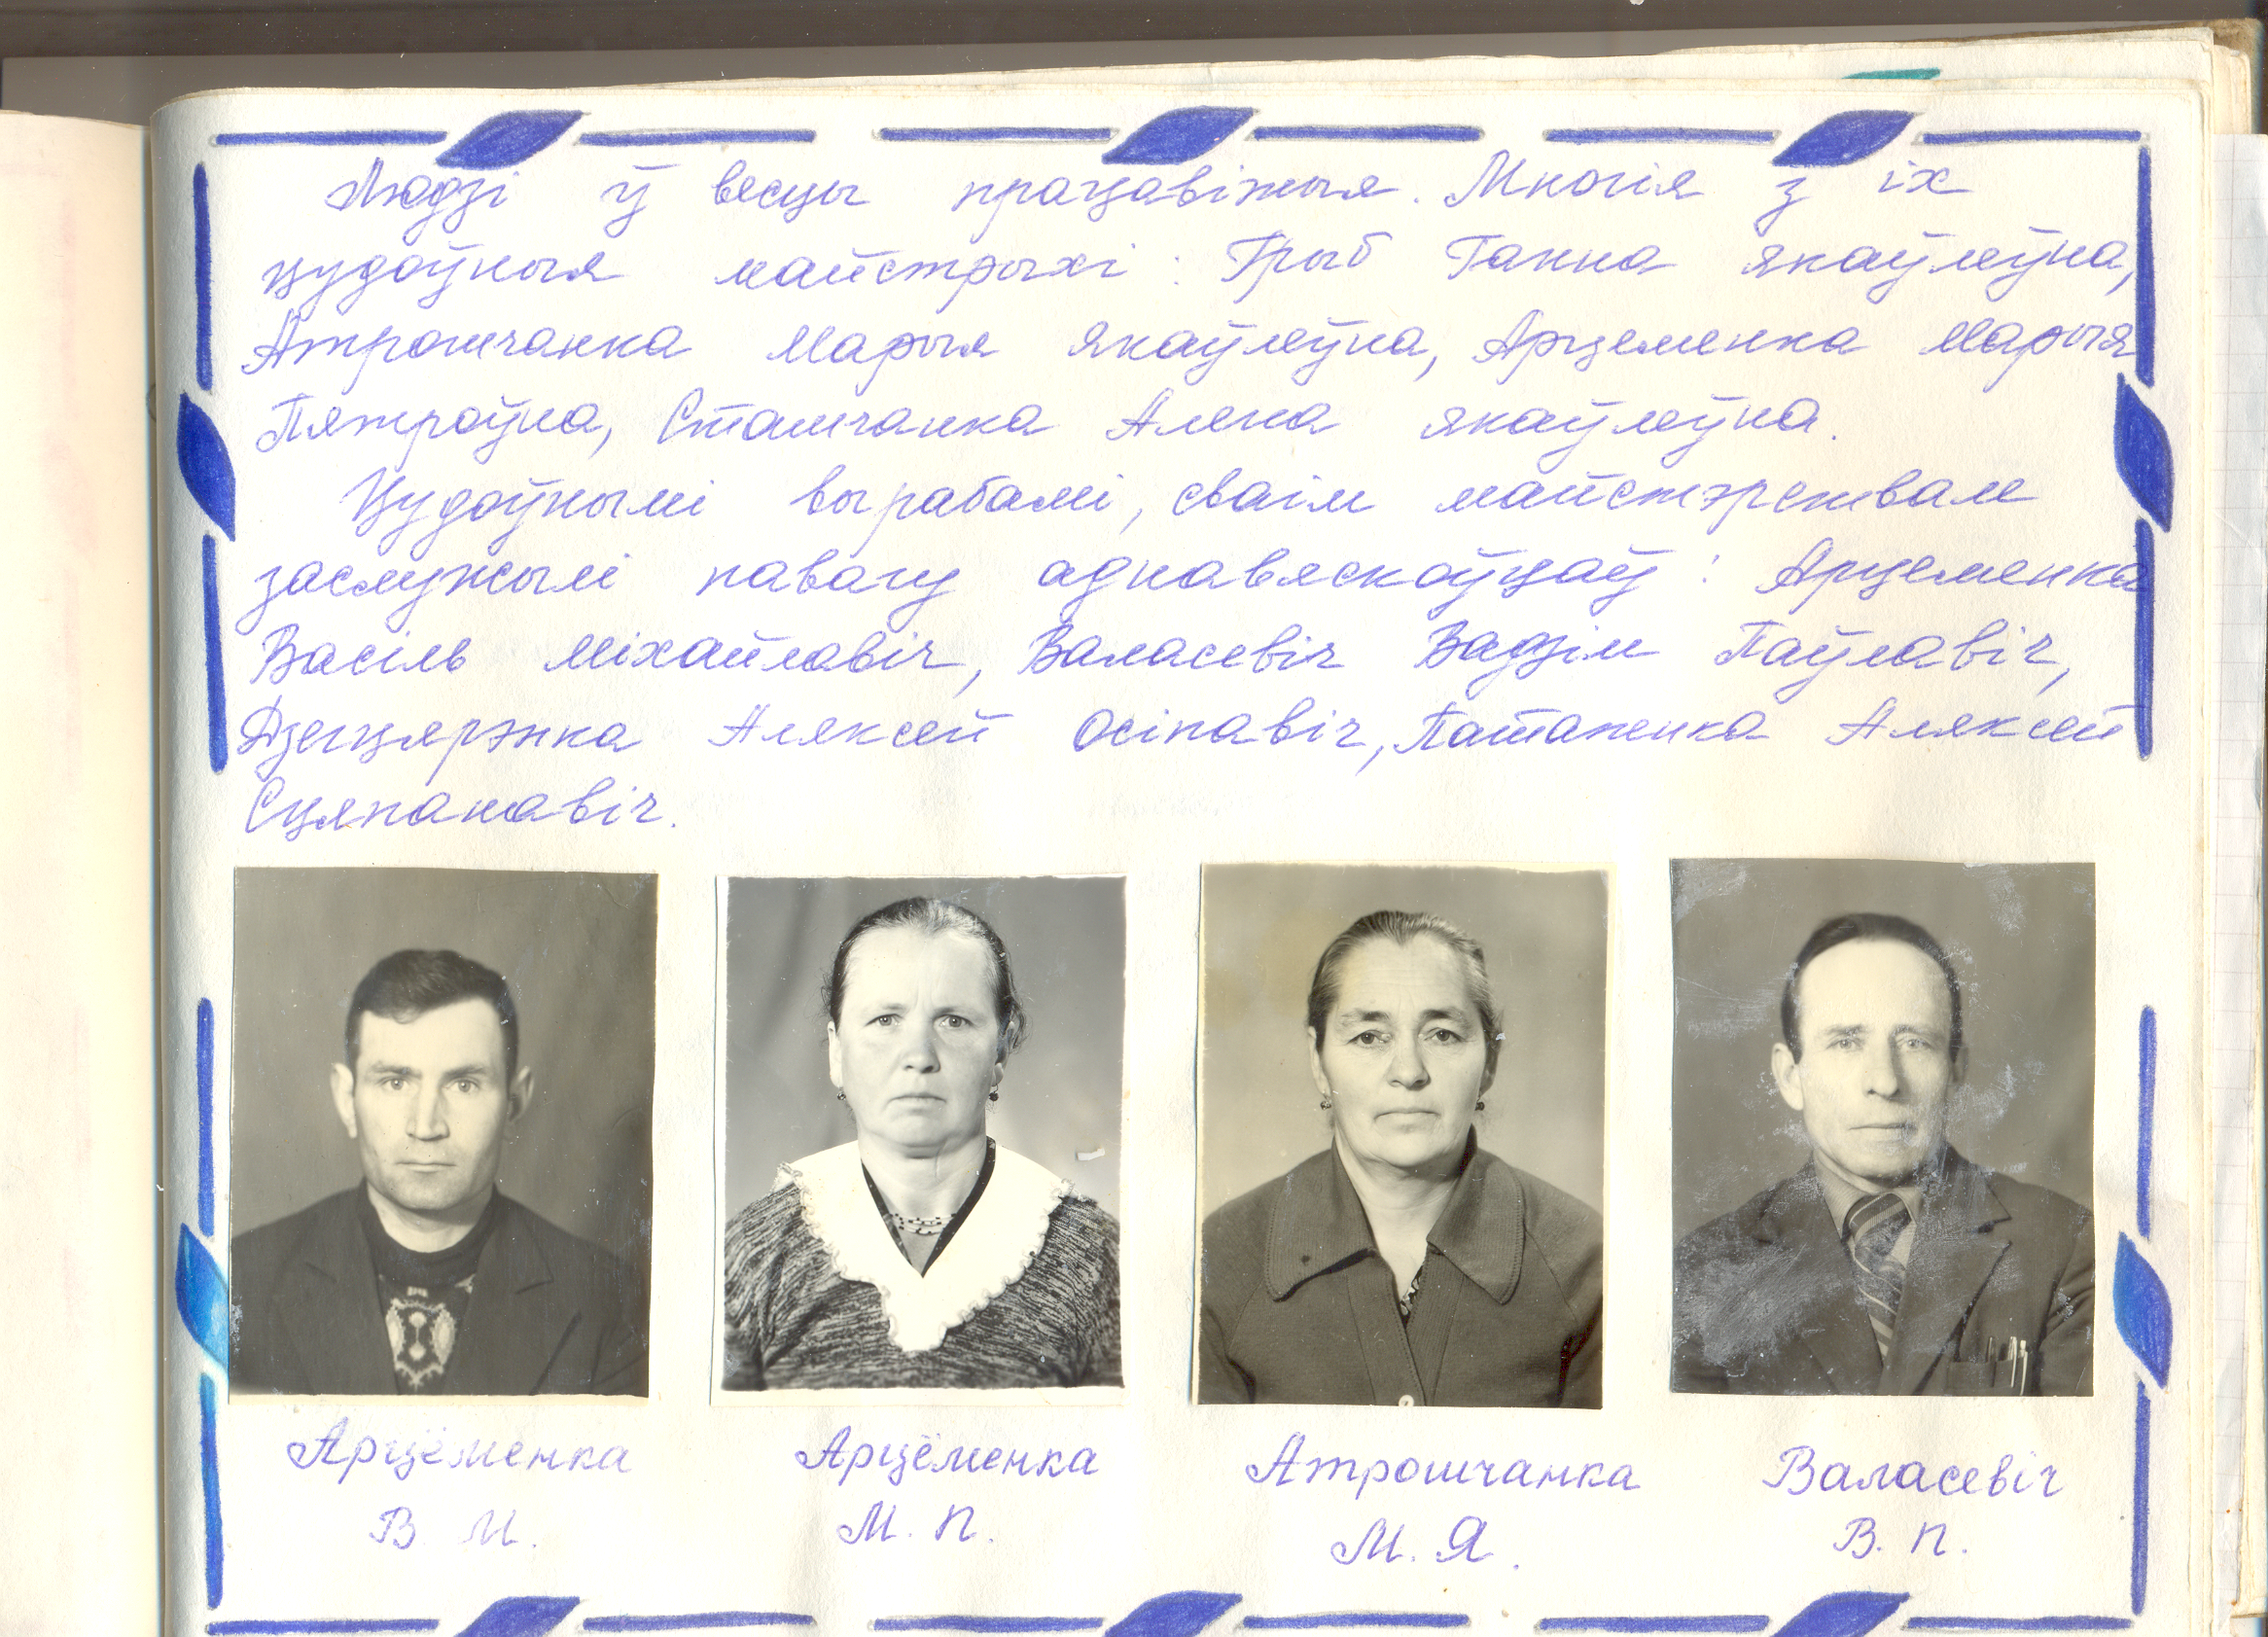 Людзі ў весцы працавіжыя. Многія з іх
цудоўныя майстрыхі: Грыб Ганна Якаўлеўна,
Атрошчанка Марыя Якаўлеўна, Арцеменка Марыя
Пятроўна, Сташчанка Алена Якаўлеўна.
Цудоўнымі вырабамі, сваім майстэрствам
заслужылі павагу аднавяскоўцаў: Арцеменка
Васіль Міхайлавіч, Валасевіч Вадзім Паўлавіч,
Дзегцярэнка Аляксей Осіпавіч, Аляксей
Сцяпанавіч.
Арцёменка Арцёменка Атрошчанка Валасевіч
В. М. М. П. М. Я. В. П.